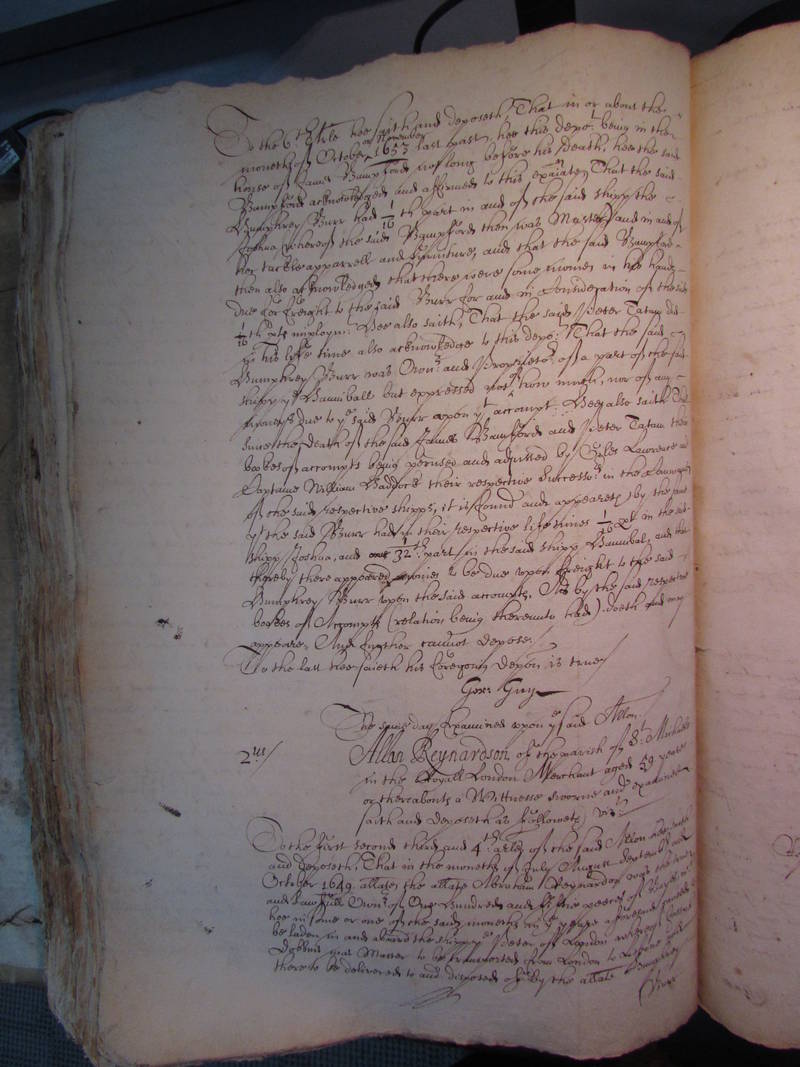 To the 6th Arle hee saith and deposeth That in or about the
moneths of October or November 1653 last past, hee this depot being in the
house of James Bamfford not long before his death, hee the said
Bamfford acknowledged and affirmed to this examinate, That the said
Humphrey Burr had 1/16 th part in and of the said shipp the
Joshua (whereof the said Bampford then was Master) and in and of
her tackle apparrell and furniture, and that the said Bampford
then also acknowledged that there were some monies in his hands
due for freight to the said Burr for and in Consideration of the said
1/16 th pte imploymt. Hee also saith, That the said Peter Tatam did
in his life time also acknowledge to this depot That the said
Humphrey Burr was Ownr and Proprietor of a part of the said
shipp ye Hanniball but expressed not how much, nor of any
moneys due to ye said Burr upon yt accompt. Hee also saith That
since the death of the said James Bamfford and Peter Tatam their
bookes of accompts being perused and adjusted by Giles Lawrence and
Captaine William Haddock their respective Successors in the
of the said respective shipps, it is found and appeareth by the same
yt the said Burr had in their respective life times 1/16 pt in the said
shipp Joshua, and one 32th part in the said shipp Hannibal, and that
thereby there appeared monies to be due upon freight to the said
Humphrey Burr upon the said accompts, As by the said respective
bookes of Accompts (relation being thereunto had) doeth and may
appeare, And further cannot depose.
To the last hee saieth his foregoing deposn is true
Guy
The same day Examined upon ye said Allon.
2us/ Allan Reynardson of the parish of St Michaell
in the Royall London Merchant aged 59 yeares
or thereabouts a Wittnesse sworne and examined
saith and deposeth as followeth, vizt
To the first second third and 4th arles of the said Allon hee saith
and deposeth, That in the moneths of July August September and
October 1649 allate, the allate Abraham Reynardson was the true
and Lawfull Ownr of One Hundred and fiftie peeces of
hee in some or one of the said moneths in ye yeare aforesaid caused to
be laden in and aboard the shipp ye Peter of London whereof
Dobbins was Master to be transported from London to
there to be delivered to and disposed of by the allate Humphrey
Burr